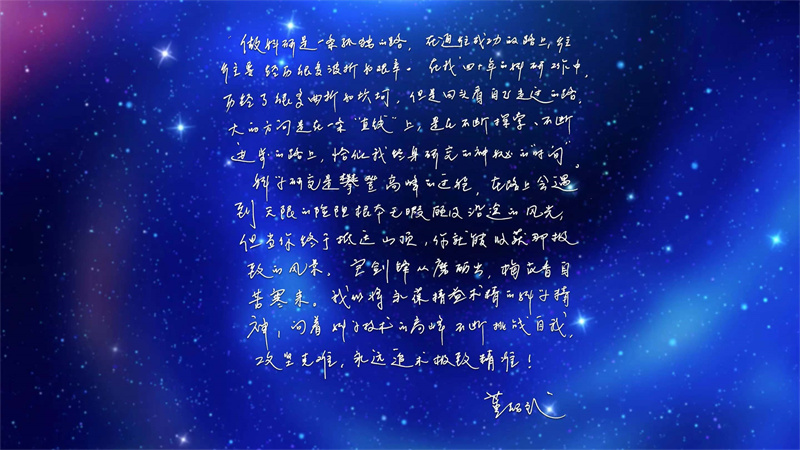 做科研是一条孤独的路，在通往成功的路上，往
往要经历很多波折和艰辛。在我四十年的科研工作中，
历经了很多曲折和坎坷，但是回头看自己走过的路，
大的方向是在一条“直线”上，是在不断探索、不断
进步的路上，恰似我终身研究的神秘的时间。
科学研究是攀登高峰的过程，在路上会遇
到无限的险阻根本无暇顾及沿途的风光，
但当你终于抵达山顶，你就能收获那极
致的风景。宝剑锋从磨砺出，梅花香自
苦寒来。我们将永葆精益求精的科学精
神，向着科学技术的高峰不断挑战自我，
攻坚克难，永远追求极致精准！